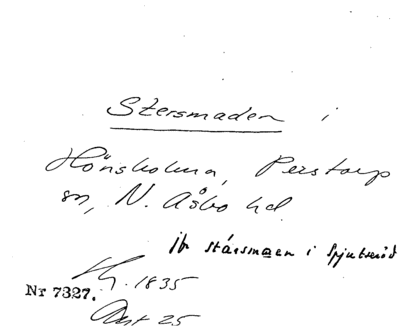 Stersmaden i
Hönsholma, Perstorp
sn, N. Åsbo hd.
Jfr stársmaen i Spjutseröd
1835
Nr 7327.
Akt 25